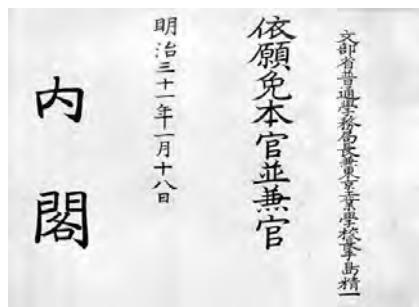 文部省普通學務局長兼東京工業學校長手島精一
依願免本官並兼官
明治三十一年一月十八日
内閣